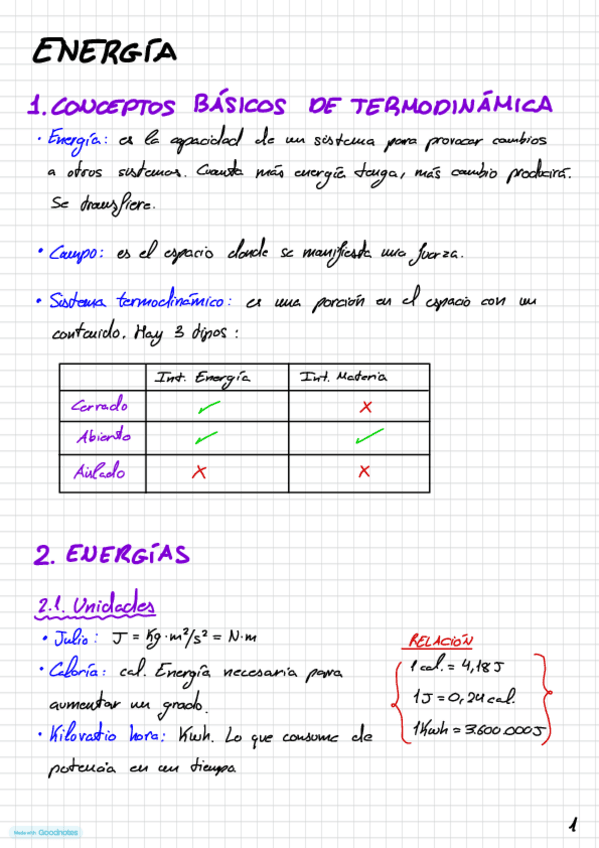 ENERGÍA
1. CONCEPTOS BÁSICOS DE TERMODINÁMICA
· Energía: es la capacidad de un sistema para provocar cambios
a otros sistemas. Cuanta más energía tenga, más cambio producirá.
Se transfiere.
· Campo: es el espacio donde se manifiesta una fuerza.
· Sistema termodinámico: es una porción en el espacio con un
contenido. Hay 3 tipos:
Int. Energía Int. Materia
Cerrado ✓ ×
Abierto ✓ ✓
Aislado × ×
2. ENERGÍAS
2.1. Unidades
· Julio: J = Kg·m²/s² = N·m
· Caloría: cal. Energía necesaria para
aumentar un grado.
· Kilovatio hora: Kwh. Lo que consume de
potencia en un tiempo
RELACIÓN
1 cal. = 4,18 J
1 J = 0,24 cal.
1 Kwh = 3.600.000 J
Made with Goodnotes
1